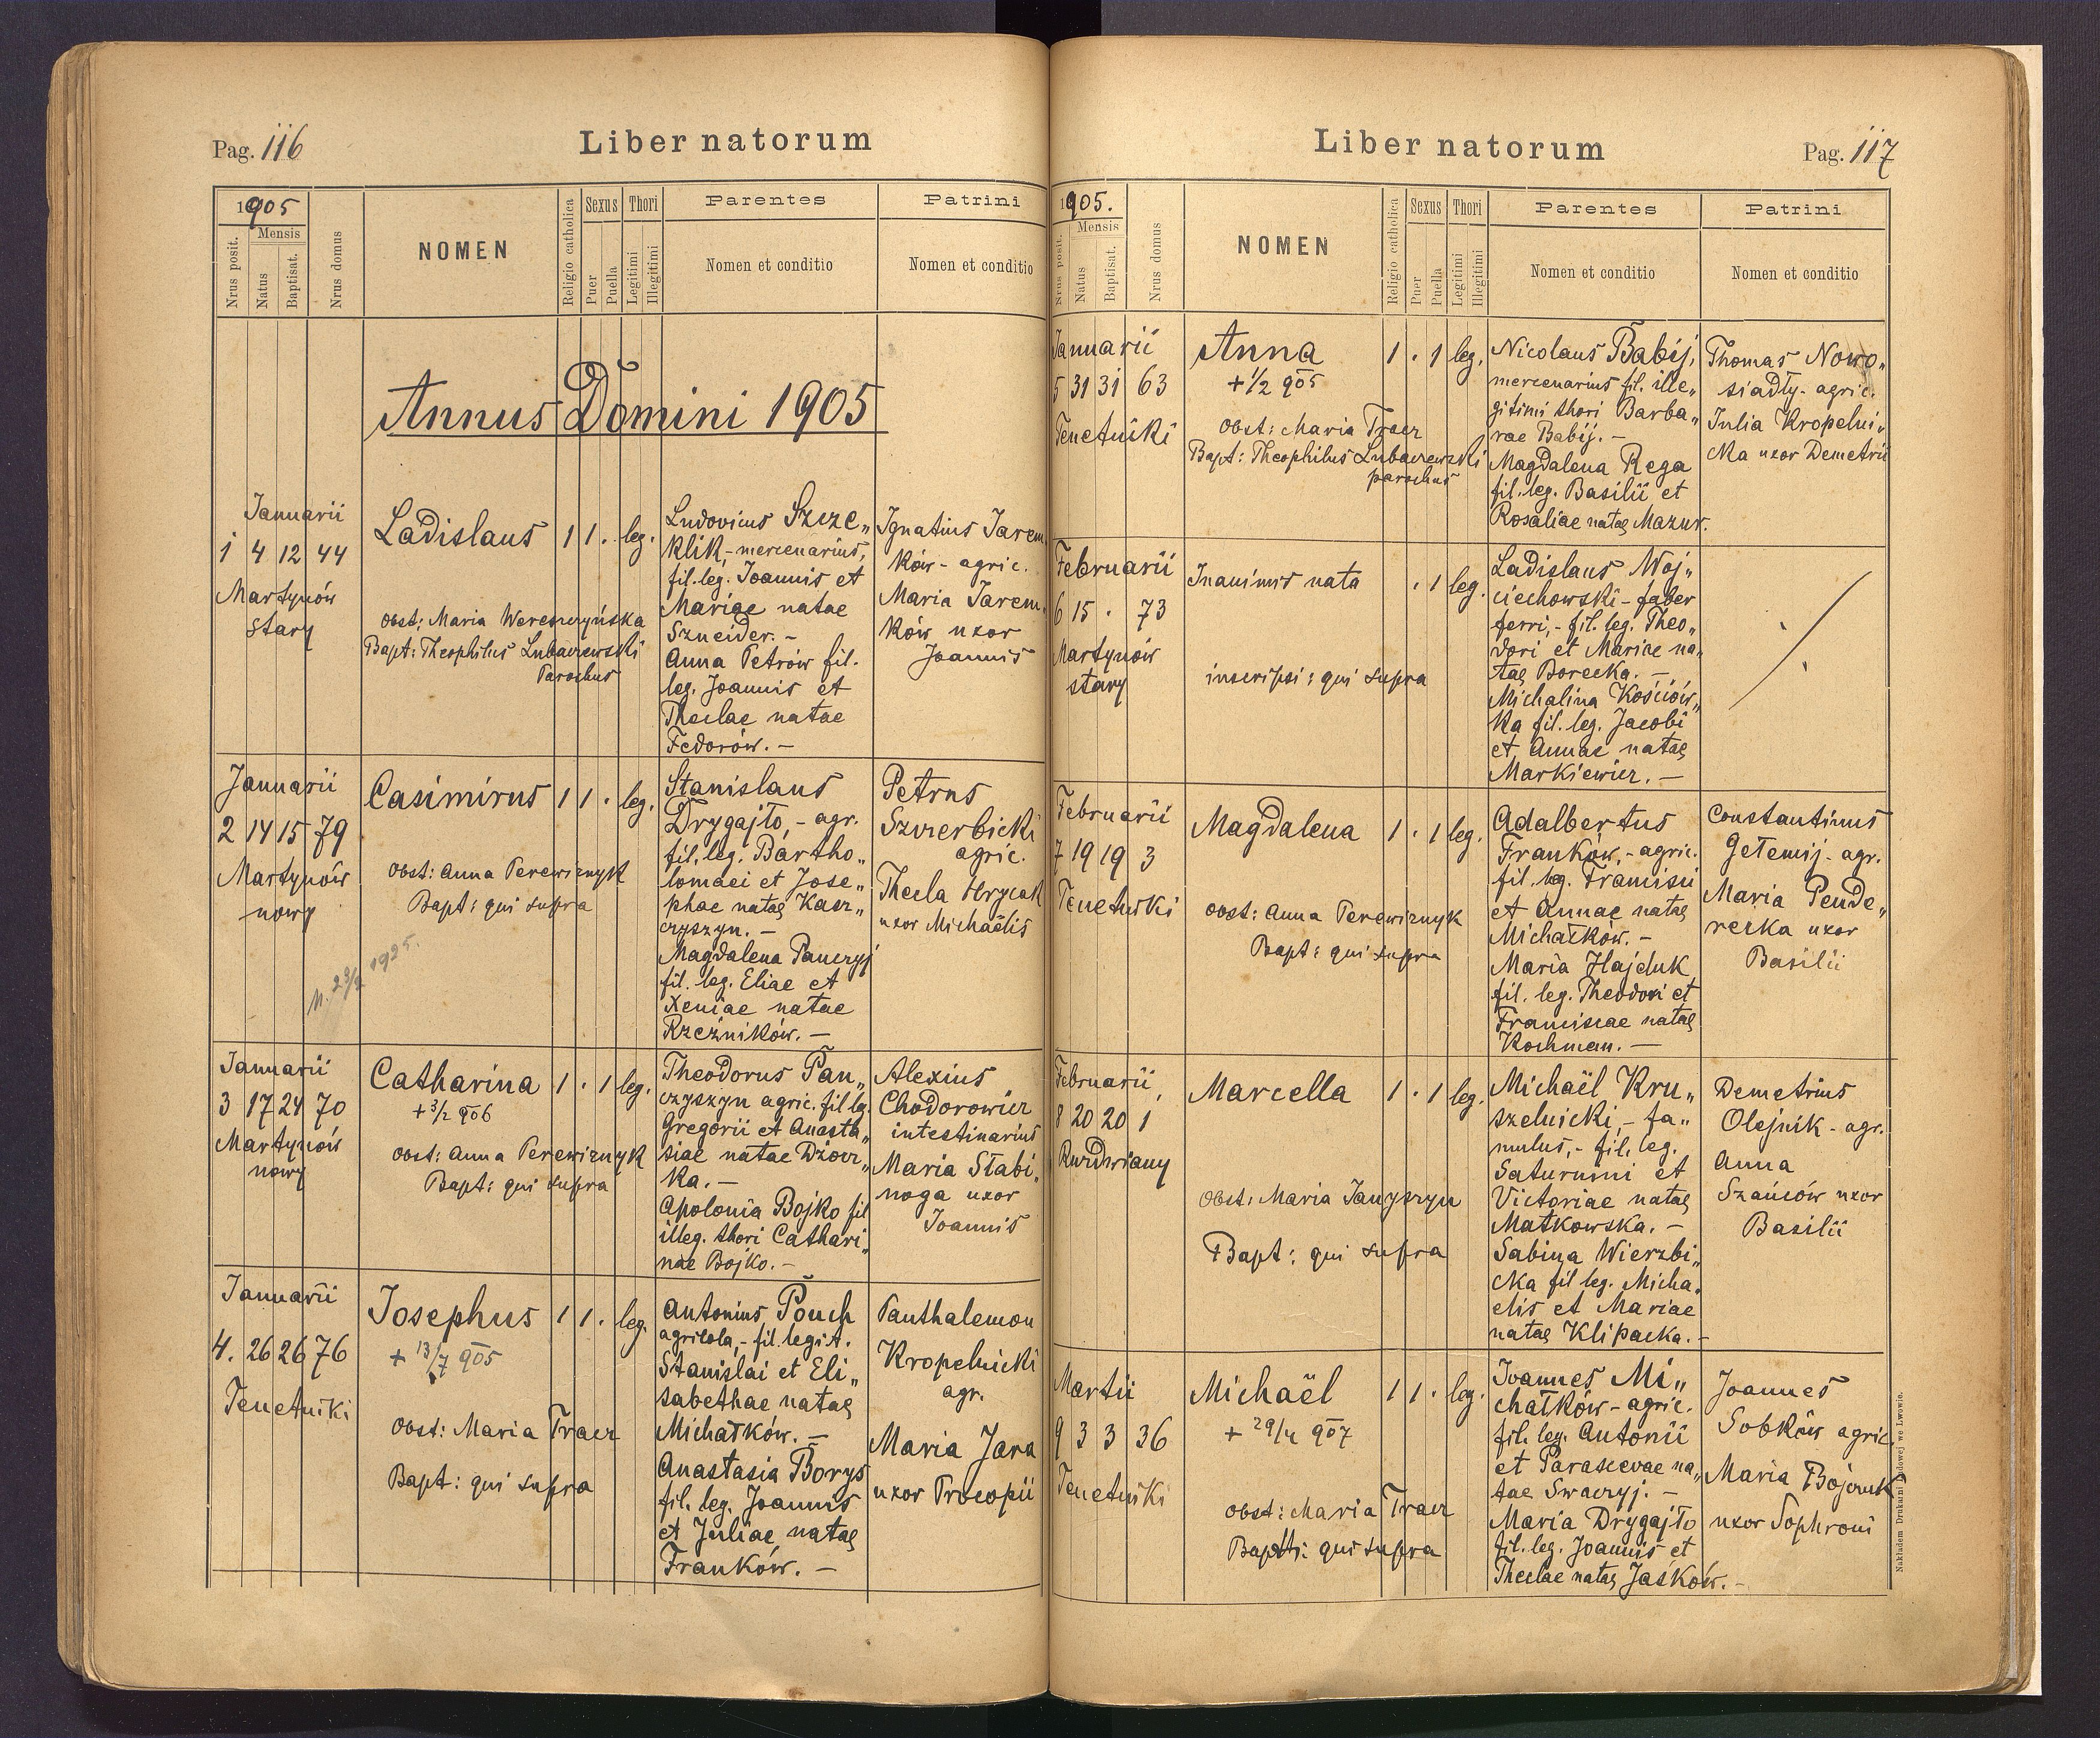 Pag. 116
Liber natorum
1905
Mensis
Nrus posit.
Natus
Baptisat.
Nrus domus
NOMEN
Religio catholica
Sexus
Puer
Puella
Thori
Legitimi
Illegitimi
Parentes
Nomen et conditio
Patrini
Nomen et conditio
Annus Domini 1905
Januarii
1 4 12 44
Martynów
stary
Ladislaus 1 1 . leg.
obst: Maria Wereszczyńska
Bapt: Theophilus Lubaczewski
Parochus
Ludovicus Szcze„
klik, - mercenarius,
fil. leg. Joannis et
Mariae natae
Szneider. -
Anna Petrów fil.
leg. Joannis et
Theclae natae
Fedorów. -
Ignatius Jarem„
ków - agric.
Maria Jarem„
ków uxor
Joannis
Januarii
2 14 15 79
Martynów
nowy
Casimirus 1 1 . leg.
obst: Anna Perewiznyk
Bapt: qui supra
1925.
Stanislaus
Drygajło, - agr.
fil. leg. Bartho„
lomaei et Jose„
phae natae Kacz„
czyszyn. -
Magdalena Panczyj
fil. leg. Eliae et
Xeniae natae
Rzeźników. -
Petrus
Szczerbicki
agric.
Thecla Hrycak
uxor Michaëlis
Januarii
3 17 24 70
Martynów
nowy
Catharina 1 . 1 leg.
+ 3/2 906
obst: Anna Perewiznyk
Bapt: qui supra
Theodorus Pan„
czyszyn agric. fil. leg.
Gregorii et Anasta„
siae natae
ka. -
Apolonia Bojko fil
illeg. thori Cathari„
nae Bojko. -
Alexius
Chodorowicz
intestinarius
Maria Słabi„
noga uxor
Joannis
Januarii
4. 26 26 76
Tenetniki
Josephus 1 1 . leg.
+ 13/7 905
Obst: Maria Tracz
Bapt: qui supra
Antonius Pouch
agricola, - fil. legit.
Stanislai et Eli„
sabethae natae
Michałków. -
Anastasia Borys
fil. leg. Joannis
et Juliae natae
Franków. -
Panthalemon
Kropelnicki
agr.
Maria Jara
uxor Procopii
Liber natorum
Pag. 117
1905.
Mensis
Nrus posit.
Natus
Baptisat.
Nrus domus
NOMEN
Religio catholica
Sexus
Puer
Puella
Thori
Legitimi
Illegitimi
Parentes
Nomen et conditio
Patrini
Nomen et conditio
Januarii
5 31 31 63
Tenetniki
Anna 1 . 1 leg.
+ 1/2 905
obst: Maria Tracz
Bapt: Theophilus Lubaczewski
parochus
Nicolaus Babij,
mercenarius fil. ille„
gitimi thori Barba„
rae Babij. -
Magdalena Rega
fil. leg. Basilii et
Rosaliae natae Mazur.
Thomas Nowo„
siadły - agric.
Julia Kropelni„
cka uxor Demetrii
Februarii
6 15 . 73
Martynów
stary
Inanimis nata . 1 leg.
inscripsi: qui supra
Ladislaus Woj„
ciechowski - faber
ferri, - fil. leg. Theo„
dori et Mariae na„
tae Borecka. -
Michalina Kościów„
ka fil. leg. Jacobi
et Annae natae
Markiewicz. -
Februarii
7 19 19 3
Tenetniki
Magdalena 1 . 1 leg.
obst: Anna Perewiznyk
Bapt: qui supra
Adalbertus
Franków, - agric.
fil. leg. Francisci
et Annae natae
Michałków. -
Maria Hajduk
fil. leg. Theodori et
Franciscae natae
Kochman. -
Constantinus
Getemij - agr.
Maria Pende„
recka uxor
Basilii
Februarii
8 20 20 1
Kurdwiany
Marcella 1 . 1 leg.
Obst: Maria Janyszyn
Bapt: qui supra
Michaël Kru„
szelnicki, - fa„
mulus, - fil. leg.
Saturnini et
Victoriae natae
Małkowska. -
Sabina Wierzbi„
cka fil leg. Micha„
elis et Mariae
natae Klipacka. -
Demetrius
Olejnik - agr.
Anna
Szańców uxor
Basilii
Martii
9 3 3 36
Tenetniki
Michaël 1 1 . leg.
+ 29/4 907
obst: Maria Tracz
Bapt: qui supra
Joannes Mi„
chałków - agric.
fil. leg. Antonii
et Parascevae na„
tae Swaczyj. -
Maria Drygajło
fil. leg. Joannis et
Theclae natae Jaśków. -
Joannes
Sobków agric.
Maria Bojczuk
uxor Sophroni
Nakładem Drukarni Ludowej we Lwowie.